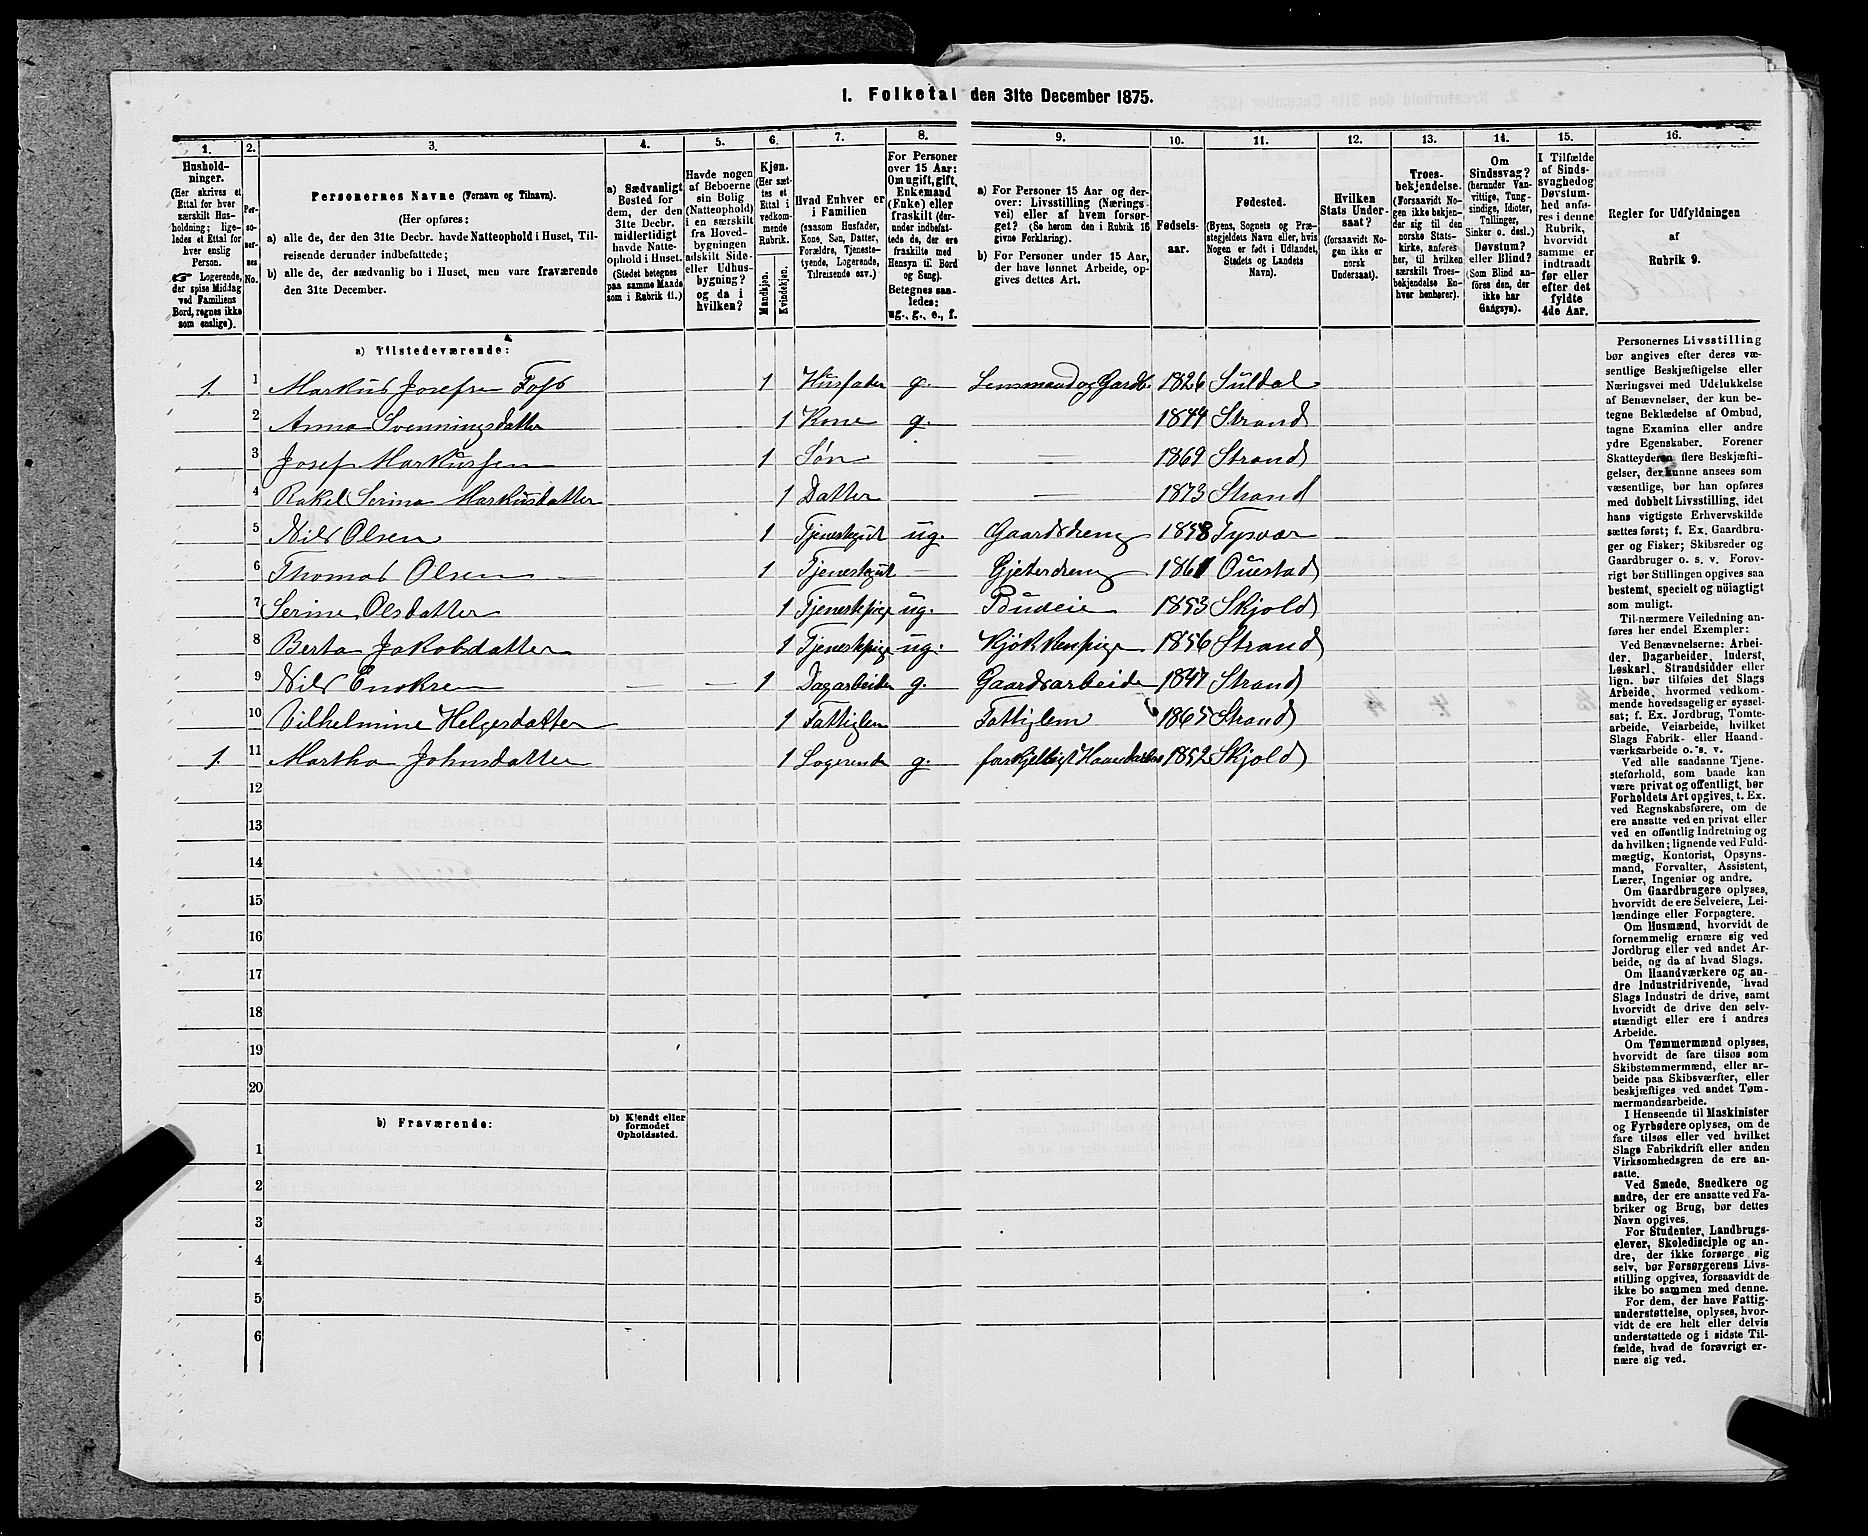 1. Folketal den 31te December 1875.
1. 2. 3. 4. 5. 6. 7. 8. 9. 10. 11. 12. 13. 14. 15. 16.
Hushold-
ninger.
(Her skrives et
Ettal for hver
særskilt Hus-
holdning; lige-
ledes et Ettal for
hver enslig
Person.
Logerende,
der spise Middag
ved Familiens
Bord, regnes ikke
som enslige).
Per-
so-
ner-
nes
No.
Personernes Navne (Fornavn og Tilnavn).
(Her opføres:
a) alle de, der den 31te Decbr. havde Natteophold i Huset, Til-
reisende derunder indbefattede;
b) alle de, der sædvanlig bo i Huset, men vare fraværende
den 31te December.
a) Sædvanligt
Bosted for
dem, der den
31te Decbr.
midlertidigt
havde Natte-
ophold i Huset.
(Stedet betegnes
paa samme Maade
som i Rubrik 11.)
Havde nogen
af Beboerne
sin Bolig
(Natteophold)
i en særskilt
fra Hoved-
bygningen
adskilt Side-
eller Udhus-
bygning?
og da i
hvilken?
Kjøn.
(Her sæt-
tes et
Ettal i
vedkom-
mende
Rubrik.
Mandkjøn.
Kvindekjøn.
Hvad Enhver er
i Familien
(saasom Husfader,
Kone, Søn, Datter,
Forældre, Tjeneste-
tyende, Logerende,
Tilreisende osv.)
For Personer
over 15 Aar:
Om ugift, gift,
Enkemand
(Enke) eller
fraskilt (der-
under indbefat-
tede de, der ere
fraskilte med
Hensyn til Bord
og Seng).
Betegnes saa-
ledes:
ug., g., e., f.
a) For Personer 15 Aar og der-
over: Livsstilling (Nærings-
vei) eller af hvem forsør-
get? (Se herom den i Rubrik 16
givne Forklaring).
b) For Personer under 15 Aar,
der have lønnet Arbeide, op-
gives dettes Art.
Fødsels-
aar.
Fødested.
(Byens, Sognets og Præ-
stegjeldets Navn eller, hvis
Nogen er født i Udlandet,
Stedets og Landets
Navn).
Hvilken
Stats Under-
saat?
(forsaavidt No-
gen ikke er
norsk
Undersaat).
Troes-
bekjendelse.
(Forsaavidt No-
gen ikke bekjen-
der sig til den
norske Stats-
kirke, anføres
her, til hvilken
særskilt Troes-
bekjendelse En-
hver henhører).
Om
Sindssvag?
(herunder Van-
vittige, Tung-
sindige, Idioter,
Tullinger,
Sinker o. desl.)
Døvstum?
eller Blind?
(Som Blind an-
føres den, der
ikke har
Gangsyn).
I Tilfælde
af Sinds-
svaghed og
Døvstum-
hed anfø-
res i denne
Rubrik,
hvorvidt
samme er
indtraadt
før eller
efter det
fyldte
4de Aar.
Regler for Udfyldningen
af
Rubrik 9.
a) Tilstedeværende:
1. 1 Markus Josefsen Fos 1 Husfader g. Lensmand og Gardb. 1826 Suldal
2 Anna Svenningsdatter 1 Kone g. — 1844 Strand
3 Josef Markussen 1 Søn — 1869 Strand
4 Rakel Serina Markusdatter 1 Datter — 1873 Strand
5 Nils Olsen 1 Tjenestegut ug. Gaardsdreng 1858 Tysvær
6 Thomas Olsen 1 Tjenestegut — Gjeterdreng 1861
7 Serine Olsdatter 1 Tjenestepige ug. Budeie 1853 Skjold
8 Berta Jakobsdatter 1 Tjenestepige ug. Kjøkkenpige 1856 Strand
9 Nils Enoksen — — 1 Dagarbeider g. Gaardsarbeide 1847 Strand
10 Vilhelmine Helgesdatter 1 Fattiglem Fattiglem 1865 Strand
1. 11 Martha Johnsdatter 1 Logerende g. forskjelligt 1852 Skjold
12
13
14
15
16
17
18
19
20
b) Fraværende:
b) Kjendt eller
formodet
Opholdssted.
1
2
3
4
5
6
Personernes Livsstilling
bør angives efter deres væ-
sentlige Beskjæftigelse eller
Næringsvei med Udelukkelse
af Benævnelser, der kun be-
tegne Beklædelse af Ombud,
tagne Examina eller andre
ydre Egenskaber. Forener
Skatteyderen flere Beskjæfti-
gelser, der kunne ansees som
væsentlige, bør han opføres
med dobbelt Livsstilling, idet
hans vigtigste Erhvervskilde
sættes først; f. Ex. Gaardbru-
ger og Fisker; Skibsreder og
Gaardbruger o. s. v. Forøv-
rigt bør Stillingen opgives saa
bestemt, specielt og nøiagtigt
som muligt.
Til nærmere Veiledning an-
føres her endel Exempler:
Ved Benævnelserne: Arbei-
der, Dagarbeider, Inderst,
Løskarl, Strandsidder eller
lign. bør tilføies det Slags
Arbeide, hvormed vedkom-
mende hovedsagelig er syssel-
sat; f. Ex. Jordbrug, Tomte-
arbeide, Veiarbeide, hvilket
Slags Fabrik- eller Haand-
værksarbeide o. s. v.
Ved alle saadanne Tjene-
steforhold, som baade kan
være privat og offentligt, bør
Forholdets Art opgives, t. Ex.
ved Regnskabsførere, om de
ere ansatte ved en privat eller
ved en offentlig Indretning og
da hvilken; lignende ved Fuld-
mægtig, Kontorist, Opsyns-
mand, Forvalter, Assistent,
Lærer, Ingeniør og andre.
Om Gaardbrugere oplyses,
hvorvidt de ere Selveiere, Lei-
lændinge eller Forpagtere.
Om Husmænd, hvorvidt de
fornemmelig ernære sig ved
Jordbrug eller ved andet Ar-
beide, og da af hvad Slags.
Om Haandværkere og an-
dre Industridrivende, hvad
Slags Industri de drive, samt
hvorvidt de drive den selv-
stændigt eller ere i andres
Arbeide.
Om Tømmermænd oplyses,
hvorvidt de fare tilsøs som
Skibstømmermænd, eller ar-
beide paa Skibsværfter, eller
beskjæftiges ved andet Tøm-
mermandsarbeide.
I Henseende til Maskinister
og Fyrbødere oplyses, om de
fare tilsøs eller ved hvilket
Slags Fabrikdrift eller anden
Virksomhedsgren de ere an-
satte.
Ved Smede, Snedkere og
andre, der ere ansatte ved Fa-
briker og Brug, bør dettes
Navn opgives.
For Studenter, Landbrugs-
elever, Skoledisciple og an-
dre, der ikke forsørge sig
selv, bør Forsørgerens Livs-
stilling opgives, forsaavidt de
ikke bo sammen med denne.
For dem, der have Fattig-
understøttelse, oplyses, hvor-
vidt de ere helt eller delvis
understøttede og i sidste Til-
fælde, hvad de forøvrigt er-
nære sig ved.